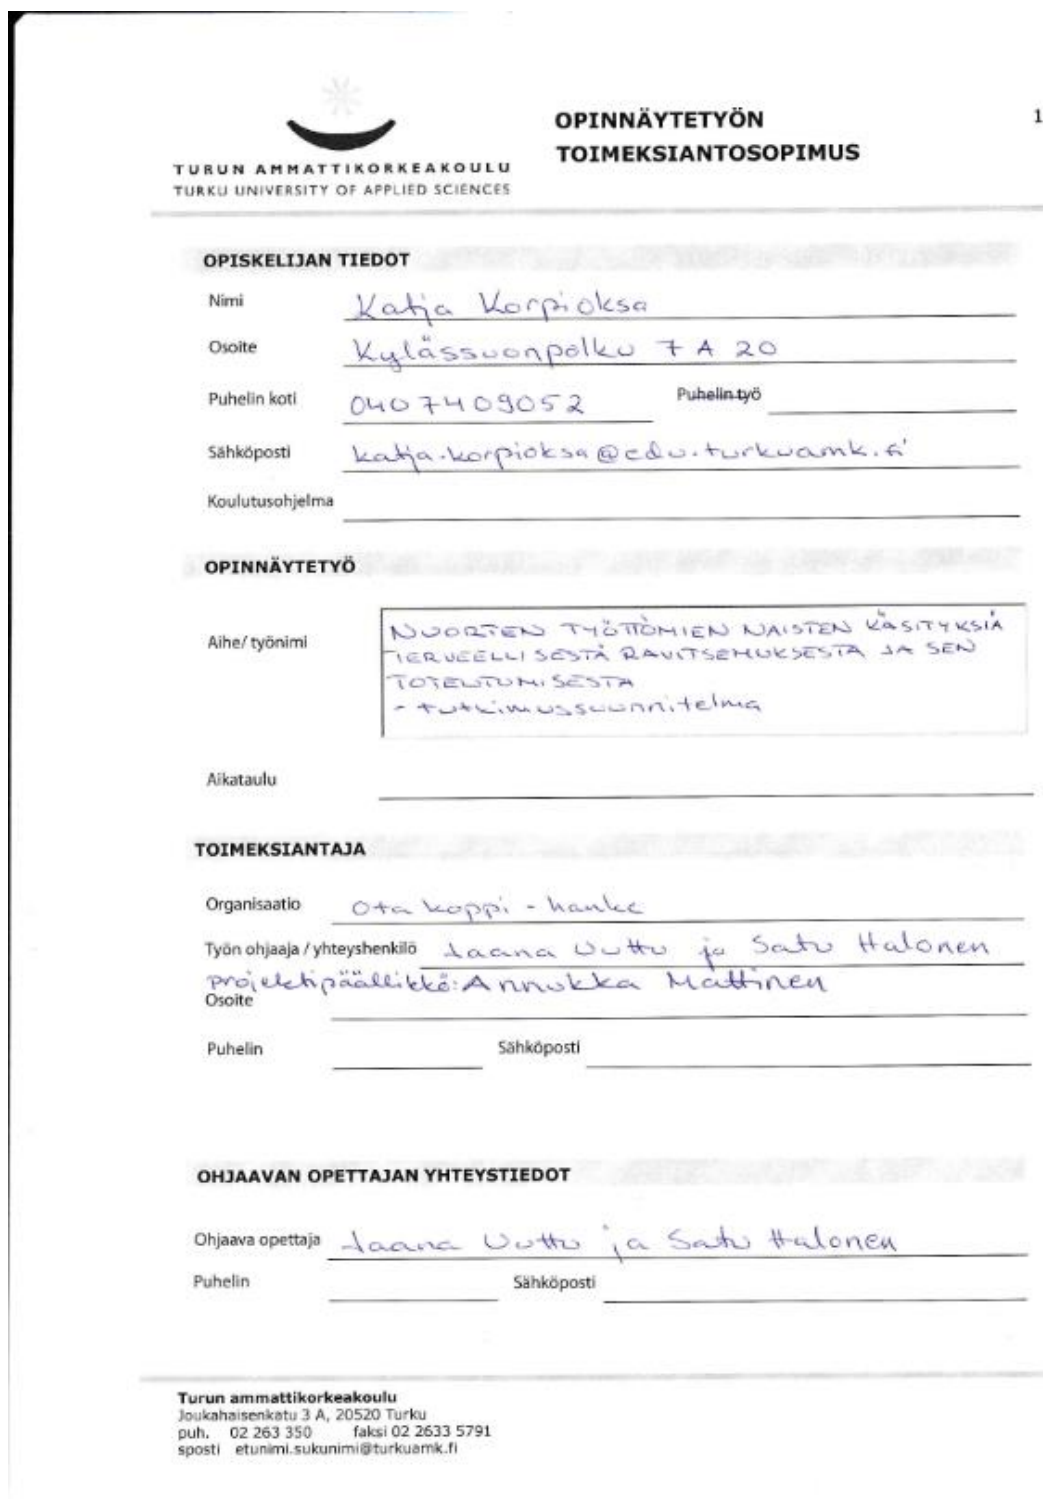 OPINNÄYTETYÖN
TOIMEKSIANTOSOPIMUS
1
TURUN AMMATTIKORKEAKOULU
TURKU UNIVERSITY OF APPLIED SCIENCES
OPISKELIJAN TIEDOT
Nimi Katja Korpioksa
Osoite Kylässuonpolku 7 A 20
Puhelin koti 0407409052 Puhelin työ
Sähköposti katja.korpioksa@edu.turkuamk.fi
Koulutusohjelma
OPINNÄYTETYÖ
Aihe/ työnimi
NUORTEN TYÖTTÖMIEN NAISTEN KÄSITYKSIÄ
TERVEELLISESTÄ RAVITSEMUKSESTA JA SEN
TOTEUTUMISESTA
- tutkimussuunnitelma
Aikataulu
TOIMEKSIANTAJA
Organisaatio Ota koppi - hanke
Työn ohjaaja / yhteyshenkilö Jaana Uuttu ja Satu Halonen
Projektipäällikkö: Annukka Mattinen
Osoite
Puhelin Sähköposti
OHJAAVAN OPETTAJAN YHTEYSTIEDOT
Ohjaava opettaja Jaana Uuttu ja Satu Halonen
Puhelin Sähköposti
Turun ammattikorkeakoulu
Joukahaisenkatu 3 A, 20520 Turku
puh. 02 263 350 faksi 02 2633 5791
sposti etunimi.sukunimi@turkuamk.fi